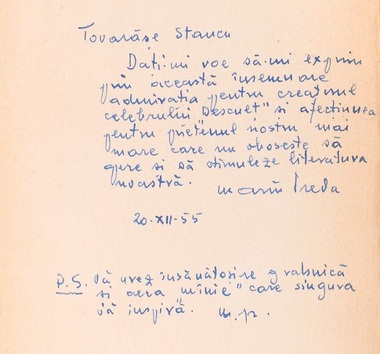 Tovarăşe Stancu
Daţi-mi voe să-mi exprim
prin această însemnare
admiraţia pentru creatorul
celebrului "Desculţ" si afecţiunea
pentru prietenul nostru mai
mare care nu oboseşte să
apere si să stimuleze literatura
noastră. Marin Preda
20-XII-55
P.S. Vă urez însănătosire grabnică
si acea "mînie" care singura
vă inspiră. M.P.